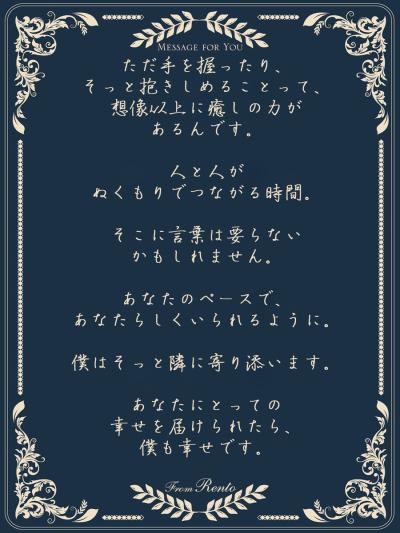 MESSAGE FOR YOU
ただ手を握ったり、
そっと抱きしめることって、
想像以上に癒しの力が
あるんです。
人と人が
ぬくもりでつながる時間。
そこに言葉は要らない
かもしれません。
あなたのペースで、
あなたらしくいられるように。
僕はそっと隣に寄り添います。
あなたにとっての
幸せを届けられたら、
僕も幸せです。
From Rento